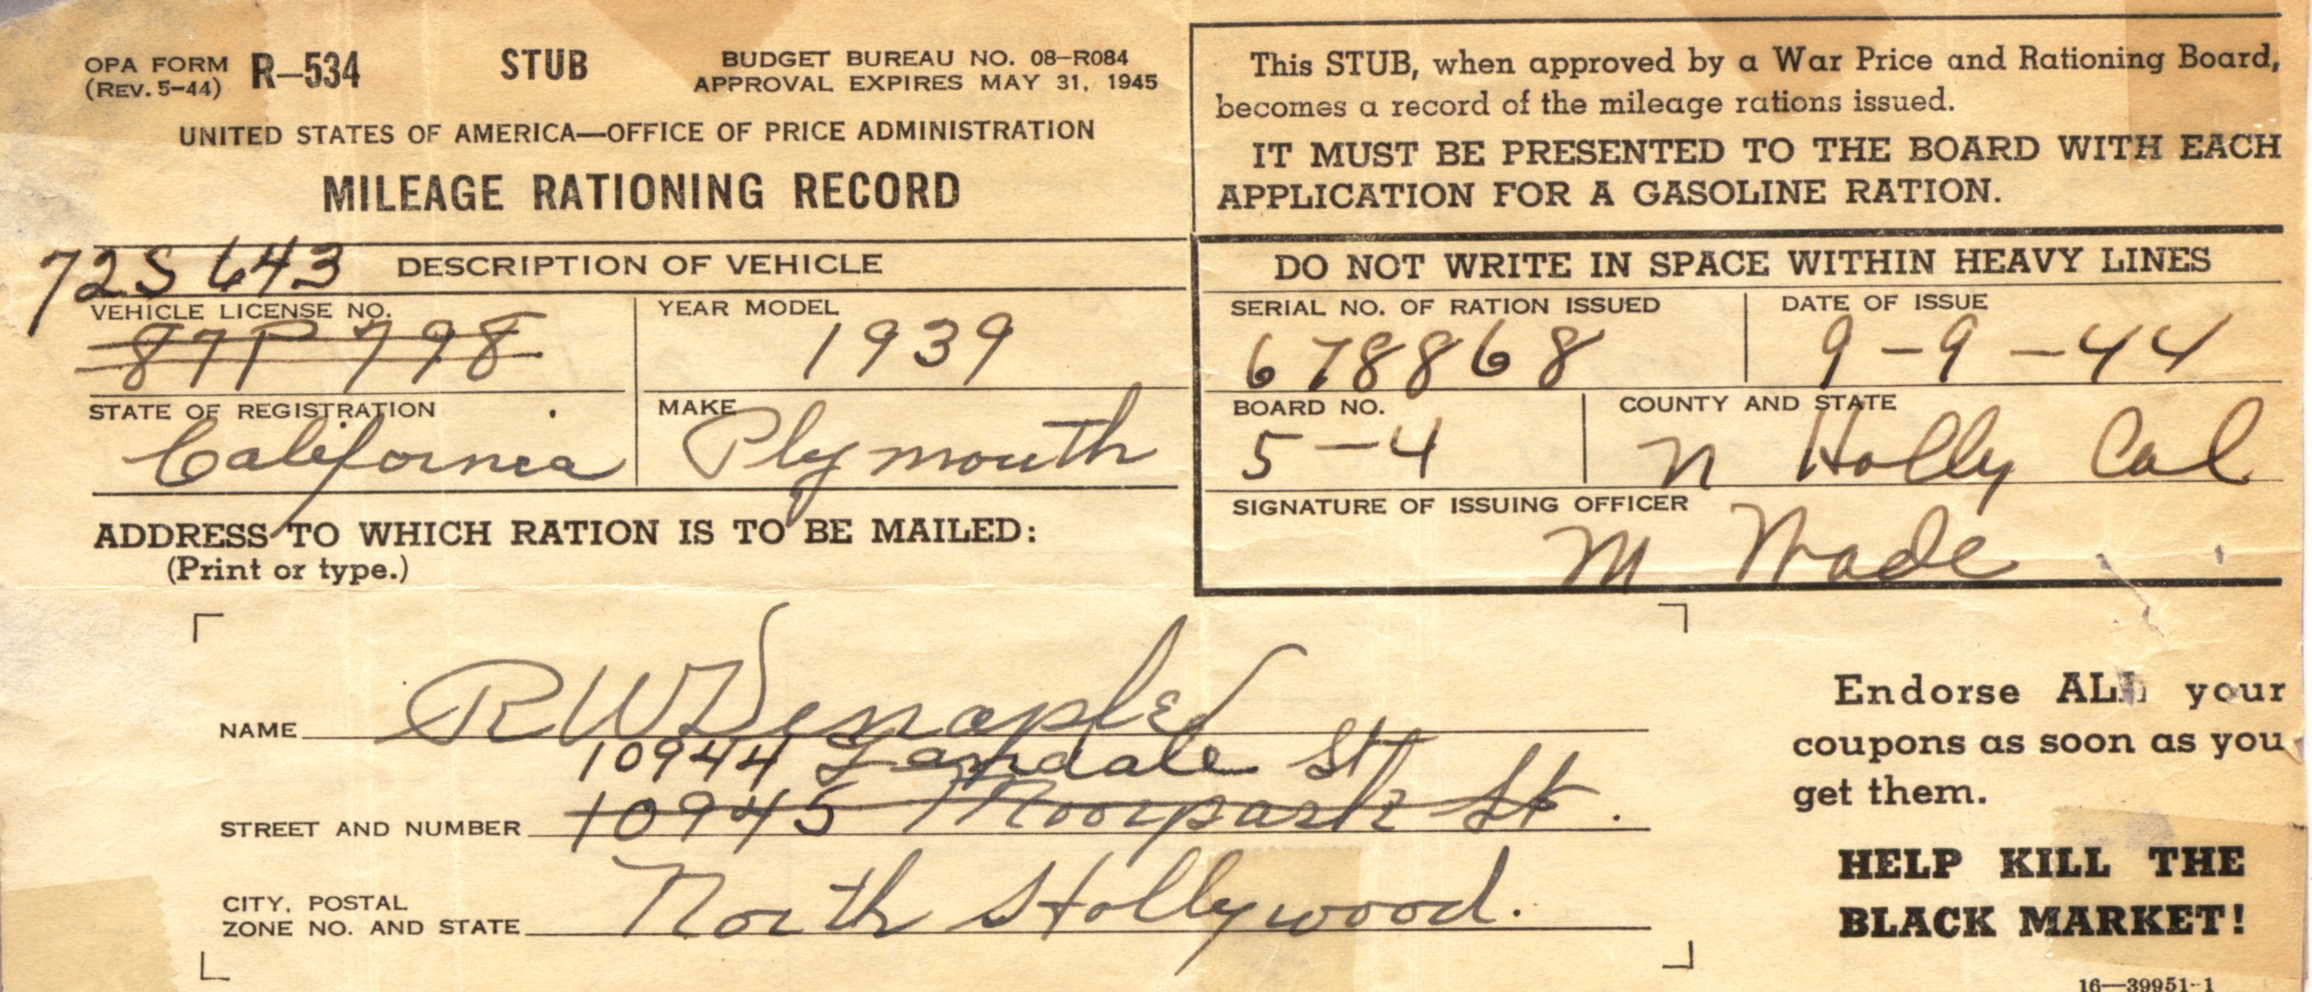 OPA FORM R-534 STUB BUDGET BUREAU NO. 08-R084
(REV. 5-44) APPROVAL EXPIRES MAY 31, 1945
UNITED STATES OF AMERICA—OFFICE OF PRICE ADMINISTRATION
MILEAGE RATIONING RECORD
72S 643 DESCRIPTION OF VEHICLE
VEHICLE LICENSE NO. YEAR MODEL
87P 798 1939
STATE OF REGISTRATION MAKE
California Plymouth
ADDRESS TO WHICH RATION IS TO BE MAILED:
(Print or type.)
This STUB, when approved by a War Price and Rationing Board,
becomes a record of the mileage rations issued.
IT MUST BE PRESENTED TO THE BOARD WITH EACH
APPLICATION FOR A GASOLINE RATION.
DO NOT WRITE IN SPACE WITHIN HEAVY LINES
SERIAL NO. OF RATION ISSUED DATE OF ISSUE
678868 9-9-44
BOARD NO. COUNTY AND STATE
5-4 N Holly Cal
SIGNATURE OF ISSUING OFFICER
M Wade
NAME R W
10944 St
STREET AND NUMBER 10945 Moorpark St.
CITY, POSTAL
ZONE NO. AND STATE North Hollywood.
Endorse ALL your
coupons as soon as you
get them.
HELP KILL THE
BLACK MARKET!
16—39951-1